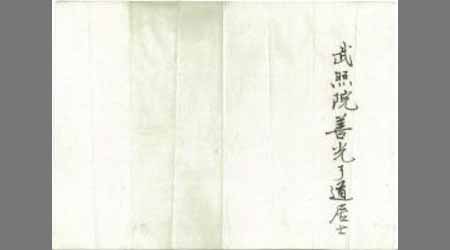 武照院善光了道居士